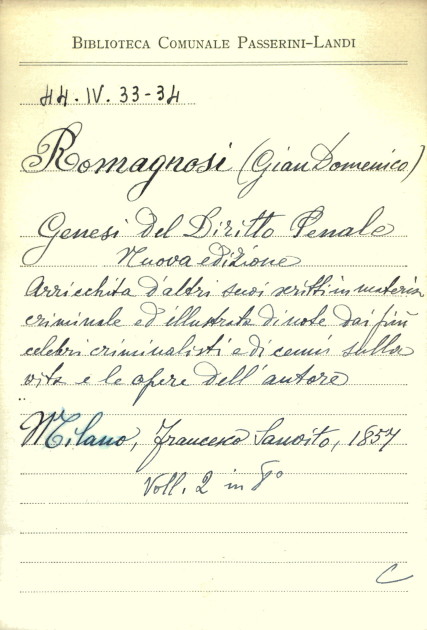 BIBLIOTECA COMUNALE PASSERINI-LANDI
44. IV. 33-34
Romagnosi (Gian Domenico)
Genesi del Diritto Penale
Nuova edizione
Arricchita d'altri suoi scritti in materia
criminale ed illustrata di note dai più
celebri criminalisti e di cenni sulla
vita e le opere dell'autore
Milano, Francesco Sanvito, 1857
Voll. 2 in 8°
C